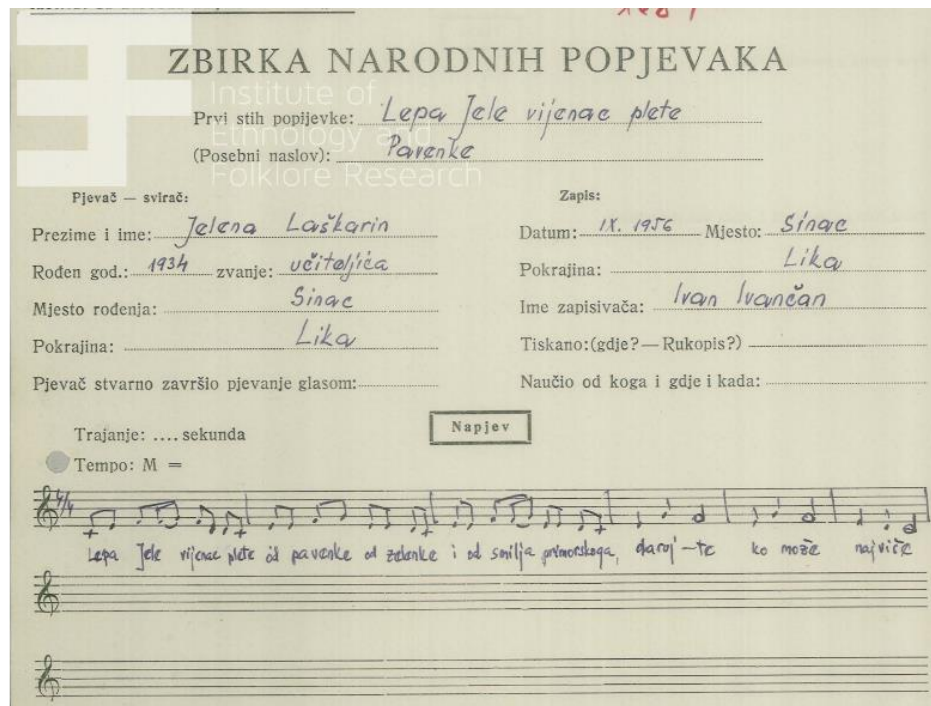 ZBIRKA NARODNIH POPJEVAKA
Institute of
Ethnology and
Folklore Research
Prvi stih popijevke: Lepa Jele vijenac plete
(Posebni naslov): Pavenke
Pjevač — svirač:
Prezime i ime: Jelena Laškarin
Rođen god.: 1934 zvanje: učiteljica
Mjesto rođenja: Sinac
Pokrajina: Lika
Pjevač stvarno završio pjevanje glasom:
Zapis:
Datum: IX. 1956 Mjesto: Sinac
Pokrajina: Lika
Ime zapisivača: Ivan Ivančan
Tiskano:(gdje?—Rukopis?)
Naučio od koga i gdje i kada:
Napjev
Trajanje: .... sekunda
Tempo: M =
4/4
Lepa Jele vijenac plete od pavenke od zelenke i od smilja primorskoga, daroj-te ko može najviše